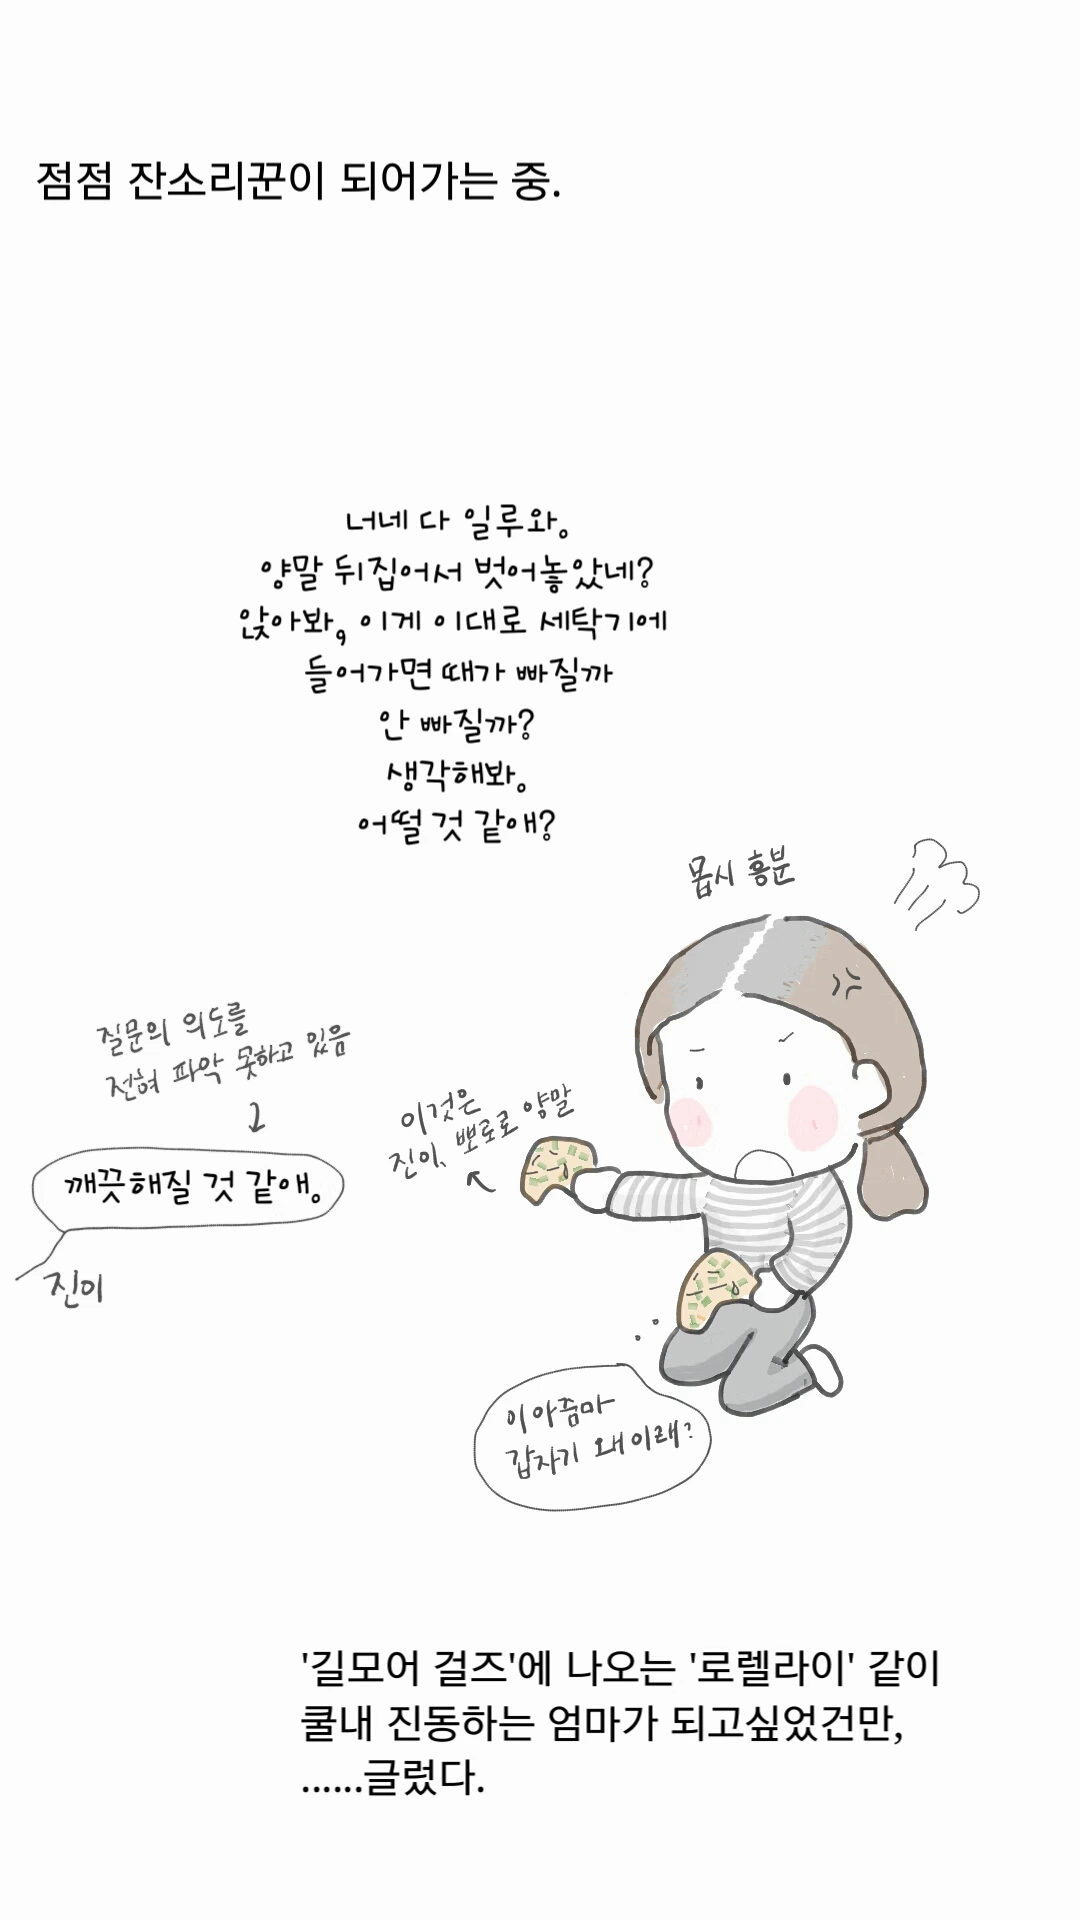 점점 잔소리꾼이 되어가는 중.
너네 다 일루와.
양말 뒤집어서 벗어놓았네?
앉아봐, 이게 이대로 세탁기에
들어가면 때가 빠질까
안 빠질까?
생각해봐.
어떨 것 같애?
몹시 흥분
질문의 의도를
전혀 파악 못하고 있음
깨끗해질 것 같애.
진이
이것은
진이, 뽀로로 양말
이 아줌마
갑자기 왜이래?
'길모어 걸즈'에 나오는 '로렐라이' 같이
쿨내 진동하는 엄마가 되고싶었건만,
......글렀다.